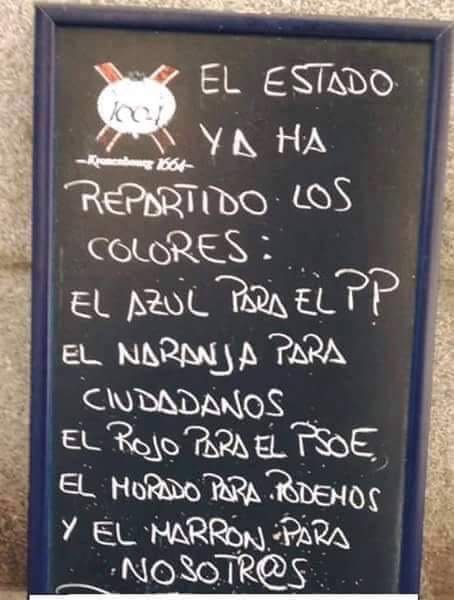 1664
Kronenbourg 1664
EL ESTADO
YA HA
REPARTIDO LOS
COLORES:
EL AZUL PARA EL PP
EL NARANJA PARA
CIUDADANOS
EL ROJO PARA EL PSOE,
EL MORADO PARA PODEMOS
Y EL MARRON PARA
NOSOTR@S